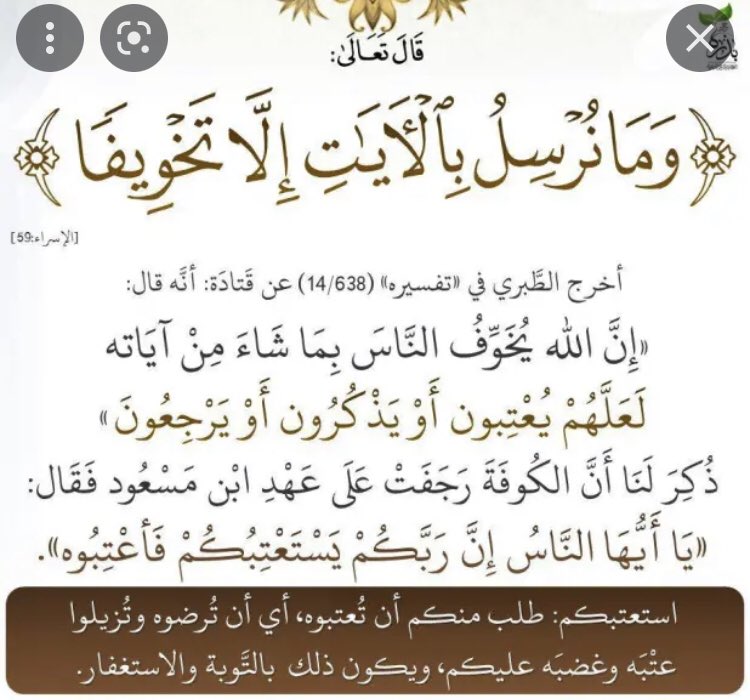 قَالَ تَعَالَىٰ:
وَمَا نُرْسِلُ بِٱلْأَيَٰتِ إِلَّا تَخْوِيفًا
[الإسراء:59]
أخرج الطَّبري في «تفسيره» (14/638) عن قَتادَة: أنَّه قال:
«إِنَّ الله يُخَوِّفُ النَّاسَ بِمَا شَاءَ مِنْ آيَاته
لَعَلَّهُمْ يُعْتِبون أَوْ يَذْكُرُون أَوْ يَرْجِعُونَ»
ذُكِرَ لَنَا أَنَّ الكُوفَةَ رَجَفَتْ عَلَى عَهْدِ ابْن مَسْعُود فَقَال:
«يَا أَيُّهَا النَّاسُ إِنَّ رَبَّكُمْ يَسْتَعْتِبُكُمْ فَأَعْتِبُوه».
استعتبكم: طلب منكم أن تُعتبوه، أي أن تُرضوه وتُزيلوا
عتْبَه وغضبَه عليكم، ويكون ذلك بالتَّوبة والاستغفار.